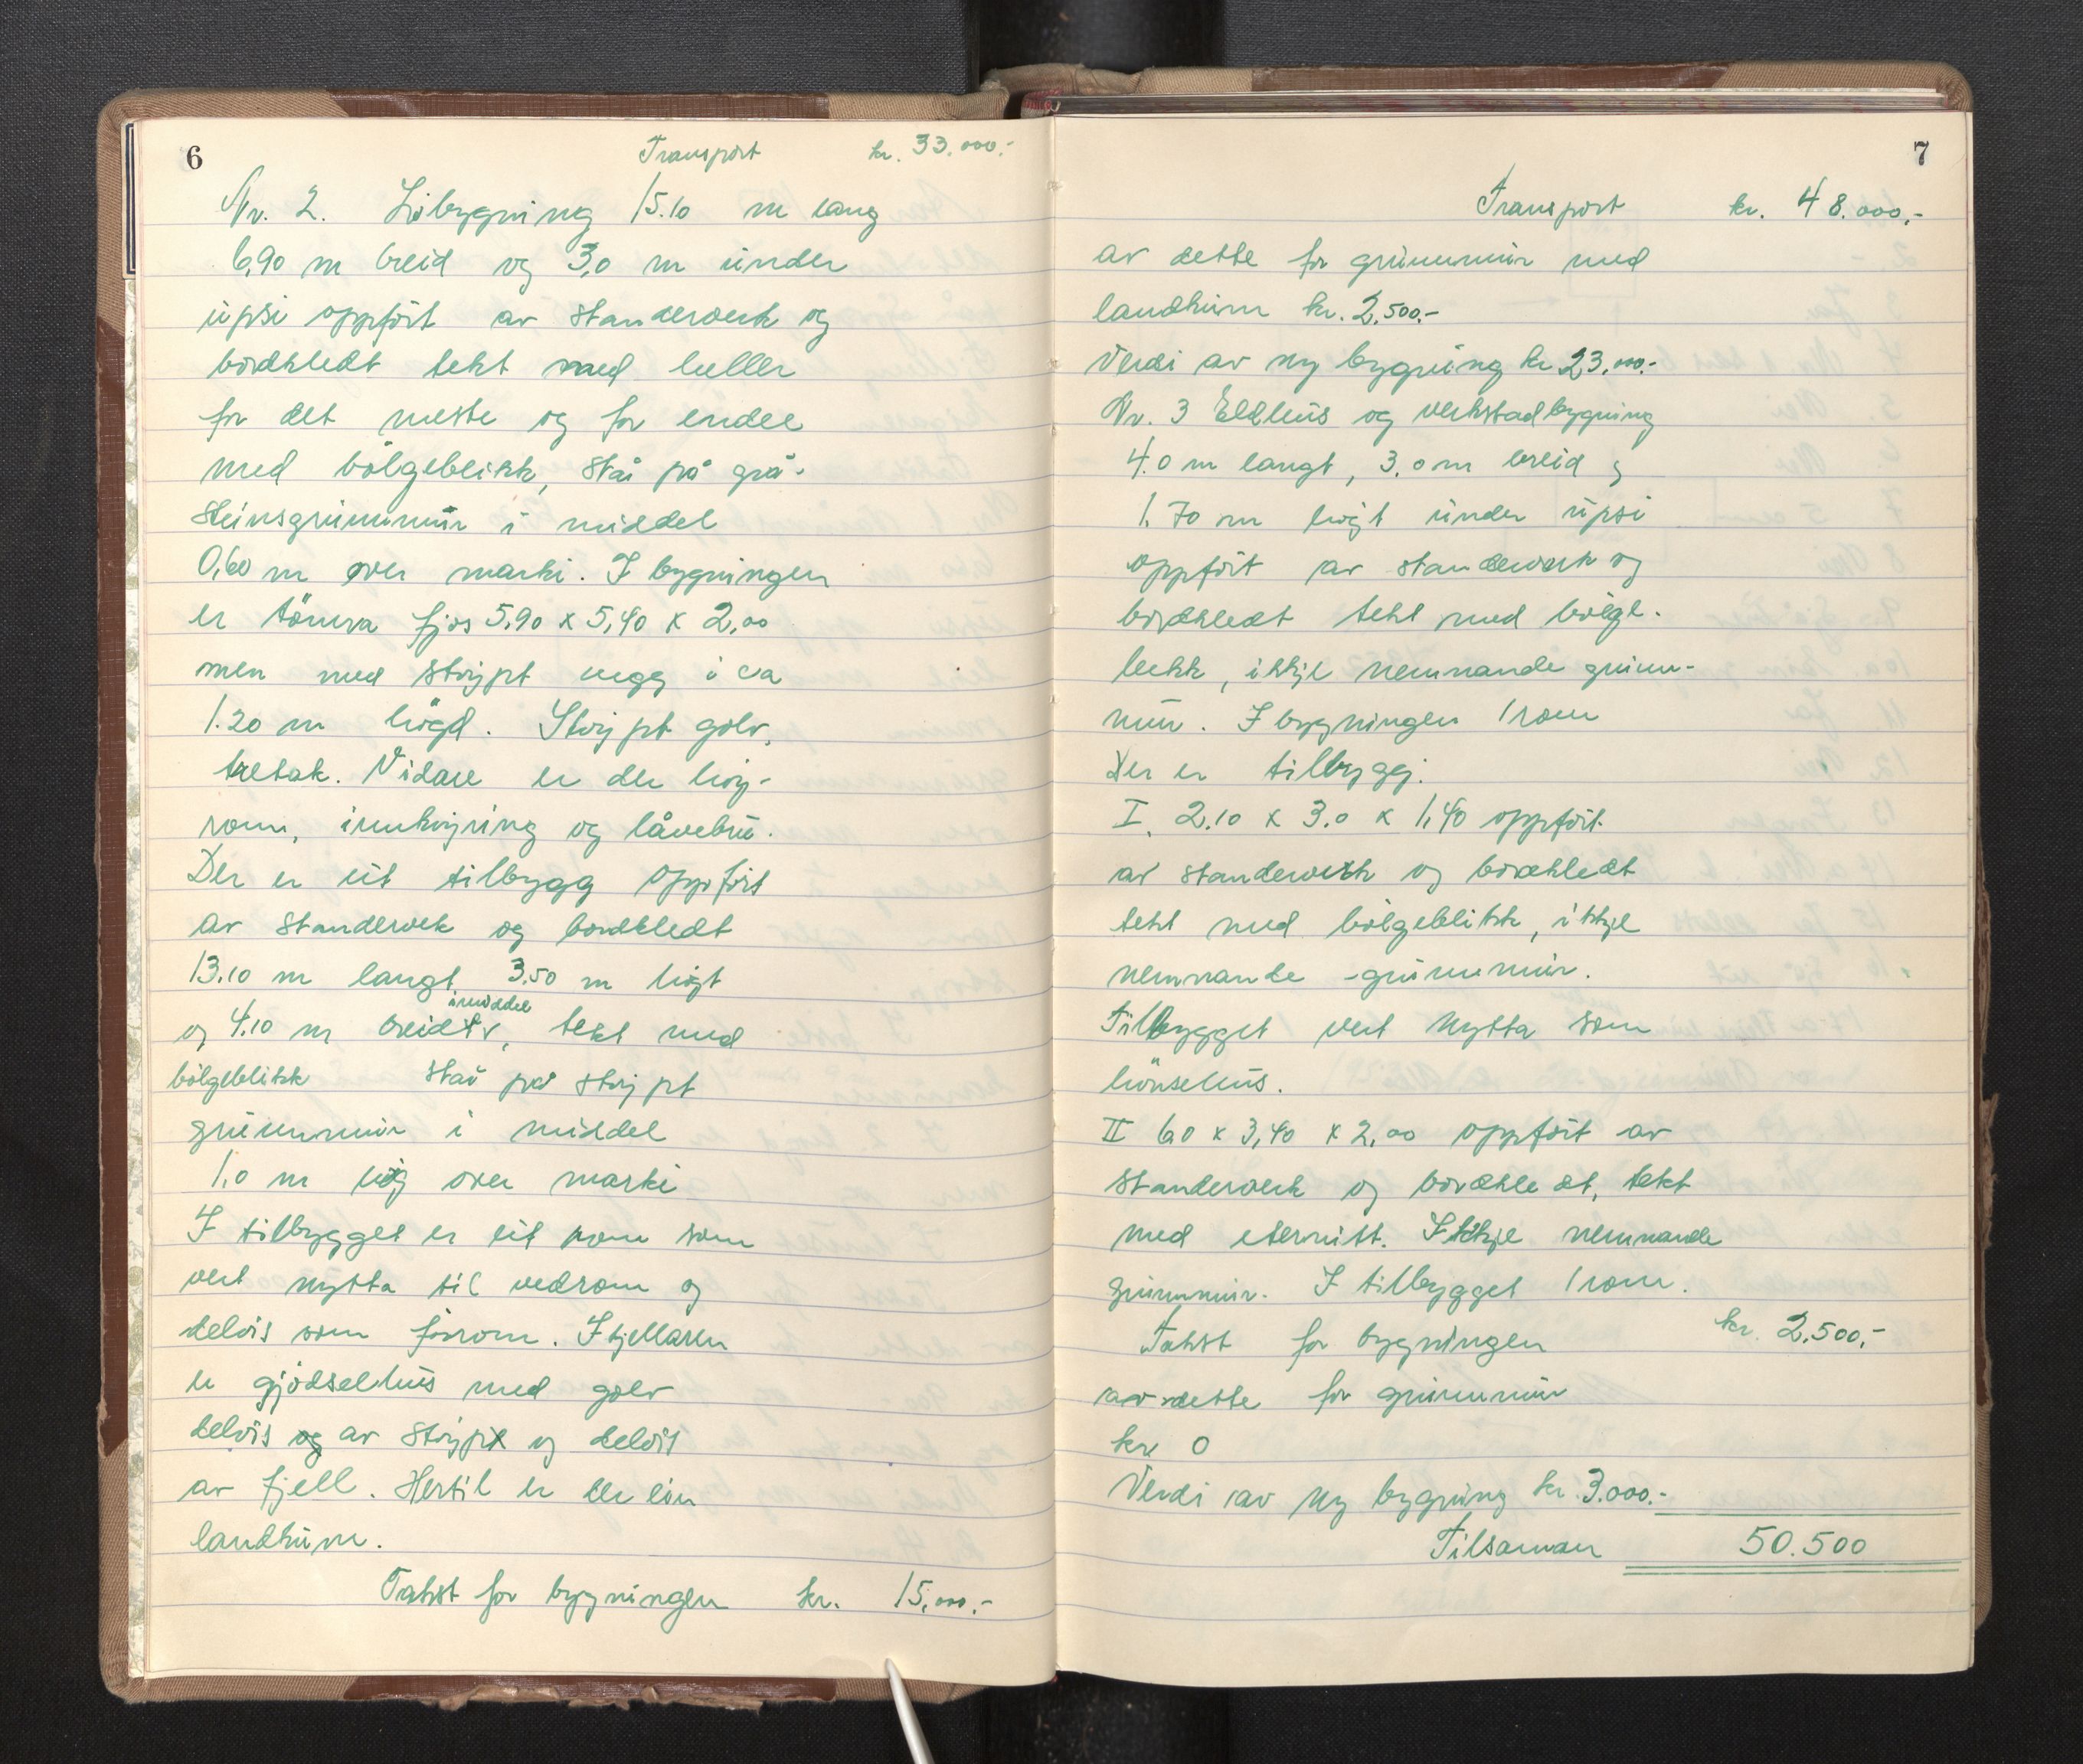 6
Transport kr. 33.000.-
Nr. 2. Löbygning 15.10 m lang
6,90 m breid og 3,0 m under
upsi oppført av standerverk og
bordkledt tekt med heller
for det meste og for endel
med bölgeblikk, står på grå-
steinsgrunnmur i middel
0,60 m over marki. I bygningen
er tömra fjos 5,90 x 5,40 x 2,00
men med støypt vegg i ca
1.20 m högd. Støypt golv,
tretak. Vidare er der høy-
rom, innkøyring og låvebru.
Der er eit tilbygg oppfört
av standerverk og bordkledt
13.10 m langt 3.50 m høgt
i middel
og 4.10 m breidt, tekt med
bölgeblikk står på støypt
grunnmur i middel
1,0 m høg over marki
I tilbygget er eit rom som
vert nytta til vedrom og
delvis som fôrrom. I kjellaren
er gjödselhus med golv
delvis og av støypt og delvis
av fjell. Hertil er der ein
landkum.
Takst for bygningen kr. 15,000.-
7
Transport kr. 48.000,-
av dette for grunnmur med
landkum kr. 2.500.-
Verdi av ny bygning kr 23,000.-
Nr. 3 Eldhus og verkstadbygning
4.0 m langt, 3.0 m breid og
1.70 m høgt under upsi
oppfört av standerverk og
bordkledt tekt med bölge-
blekk, ikkje nemnande grunn-
mur. I bygningen 1 rom
Der er tilbygg.
I. 2.10 x 3.0 x 1,40 oppfört
av standerverk og bordkledt
tekt med bölgeblikk, ikkje
nemnande grunnmur.
Tilbygget vert nytta som
hönsehus.
II 6.0 x 3,40 x 2,00 oppfört av
standerverk og bordkledt, tekt
med eternitt. Ikkje nemnande
grunnmur. I tilbygget 1 rom.
Takst for bygningen kr. 2.500,-
av dette for grunnmur
kr 0
Verdi av ny bygning kr. 3.000.-
Tilsaman 50.500